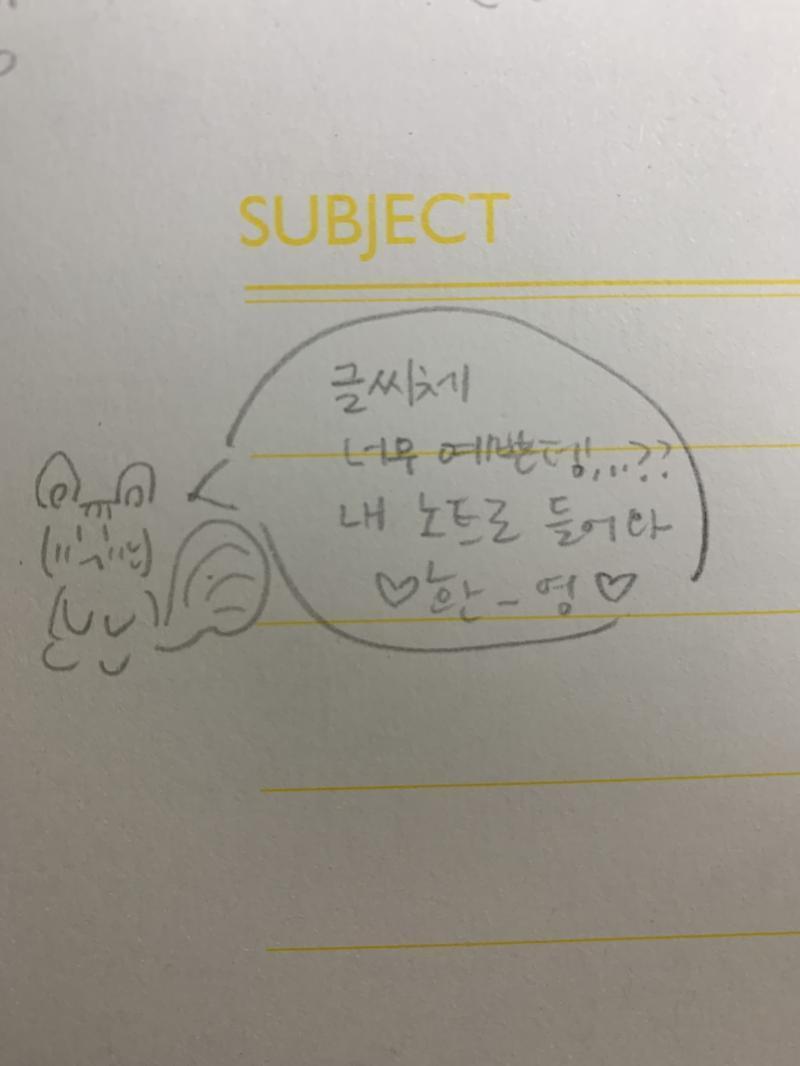 SUBJECT
글씨체
너무 예쁜뎅,...??
내 노트로 들어와
♡환_영♡